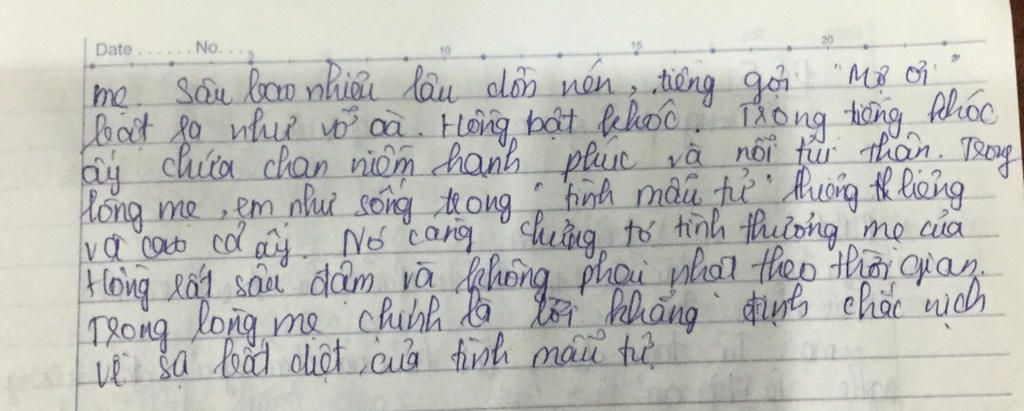 Date ........ No....5 10 15 20
mẹ. Sau bao nhiêu lâu dồn nén, tiếng gọi "Mẹ ơi"
bật ra như vỡ oà. Hồng bật khóc. Trong tiếng khóc
ấy chứa chan niềm hạnh phúc và nỗi tủi thân. Trong
lòng mẹ, em như sống trong "tình mẫu tử" thiêng liêng
và cao cả ấy. Nó càng chứng tỏ tình thương mẹ của
Hồng rất sâu đậm và không phai nhạt theo thời gian.
Trong lòng mẹ chính là lời khẳng định chắc nịch
về sự bất diệt của tình mẫu tử